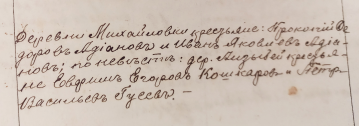 Деревни Михайловки крестьяне: Прокопій Ѳе-
доровъ Адіановъ и Иванъ Яковлевъ Адіа-
новъ; по невѣстѣ: дер. крестья-
не Евфимъ Егоровъ Кошкаровъ и Петръ
Васильевъ Гусевъ. –